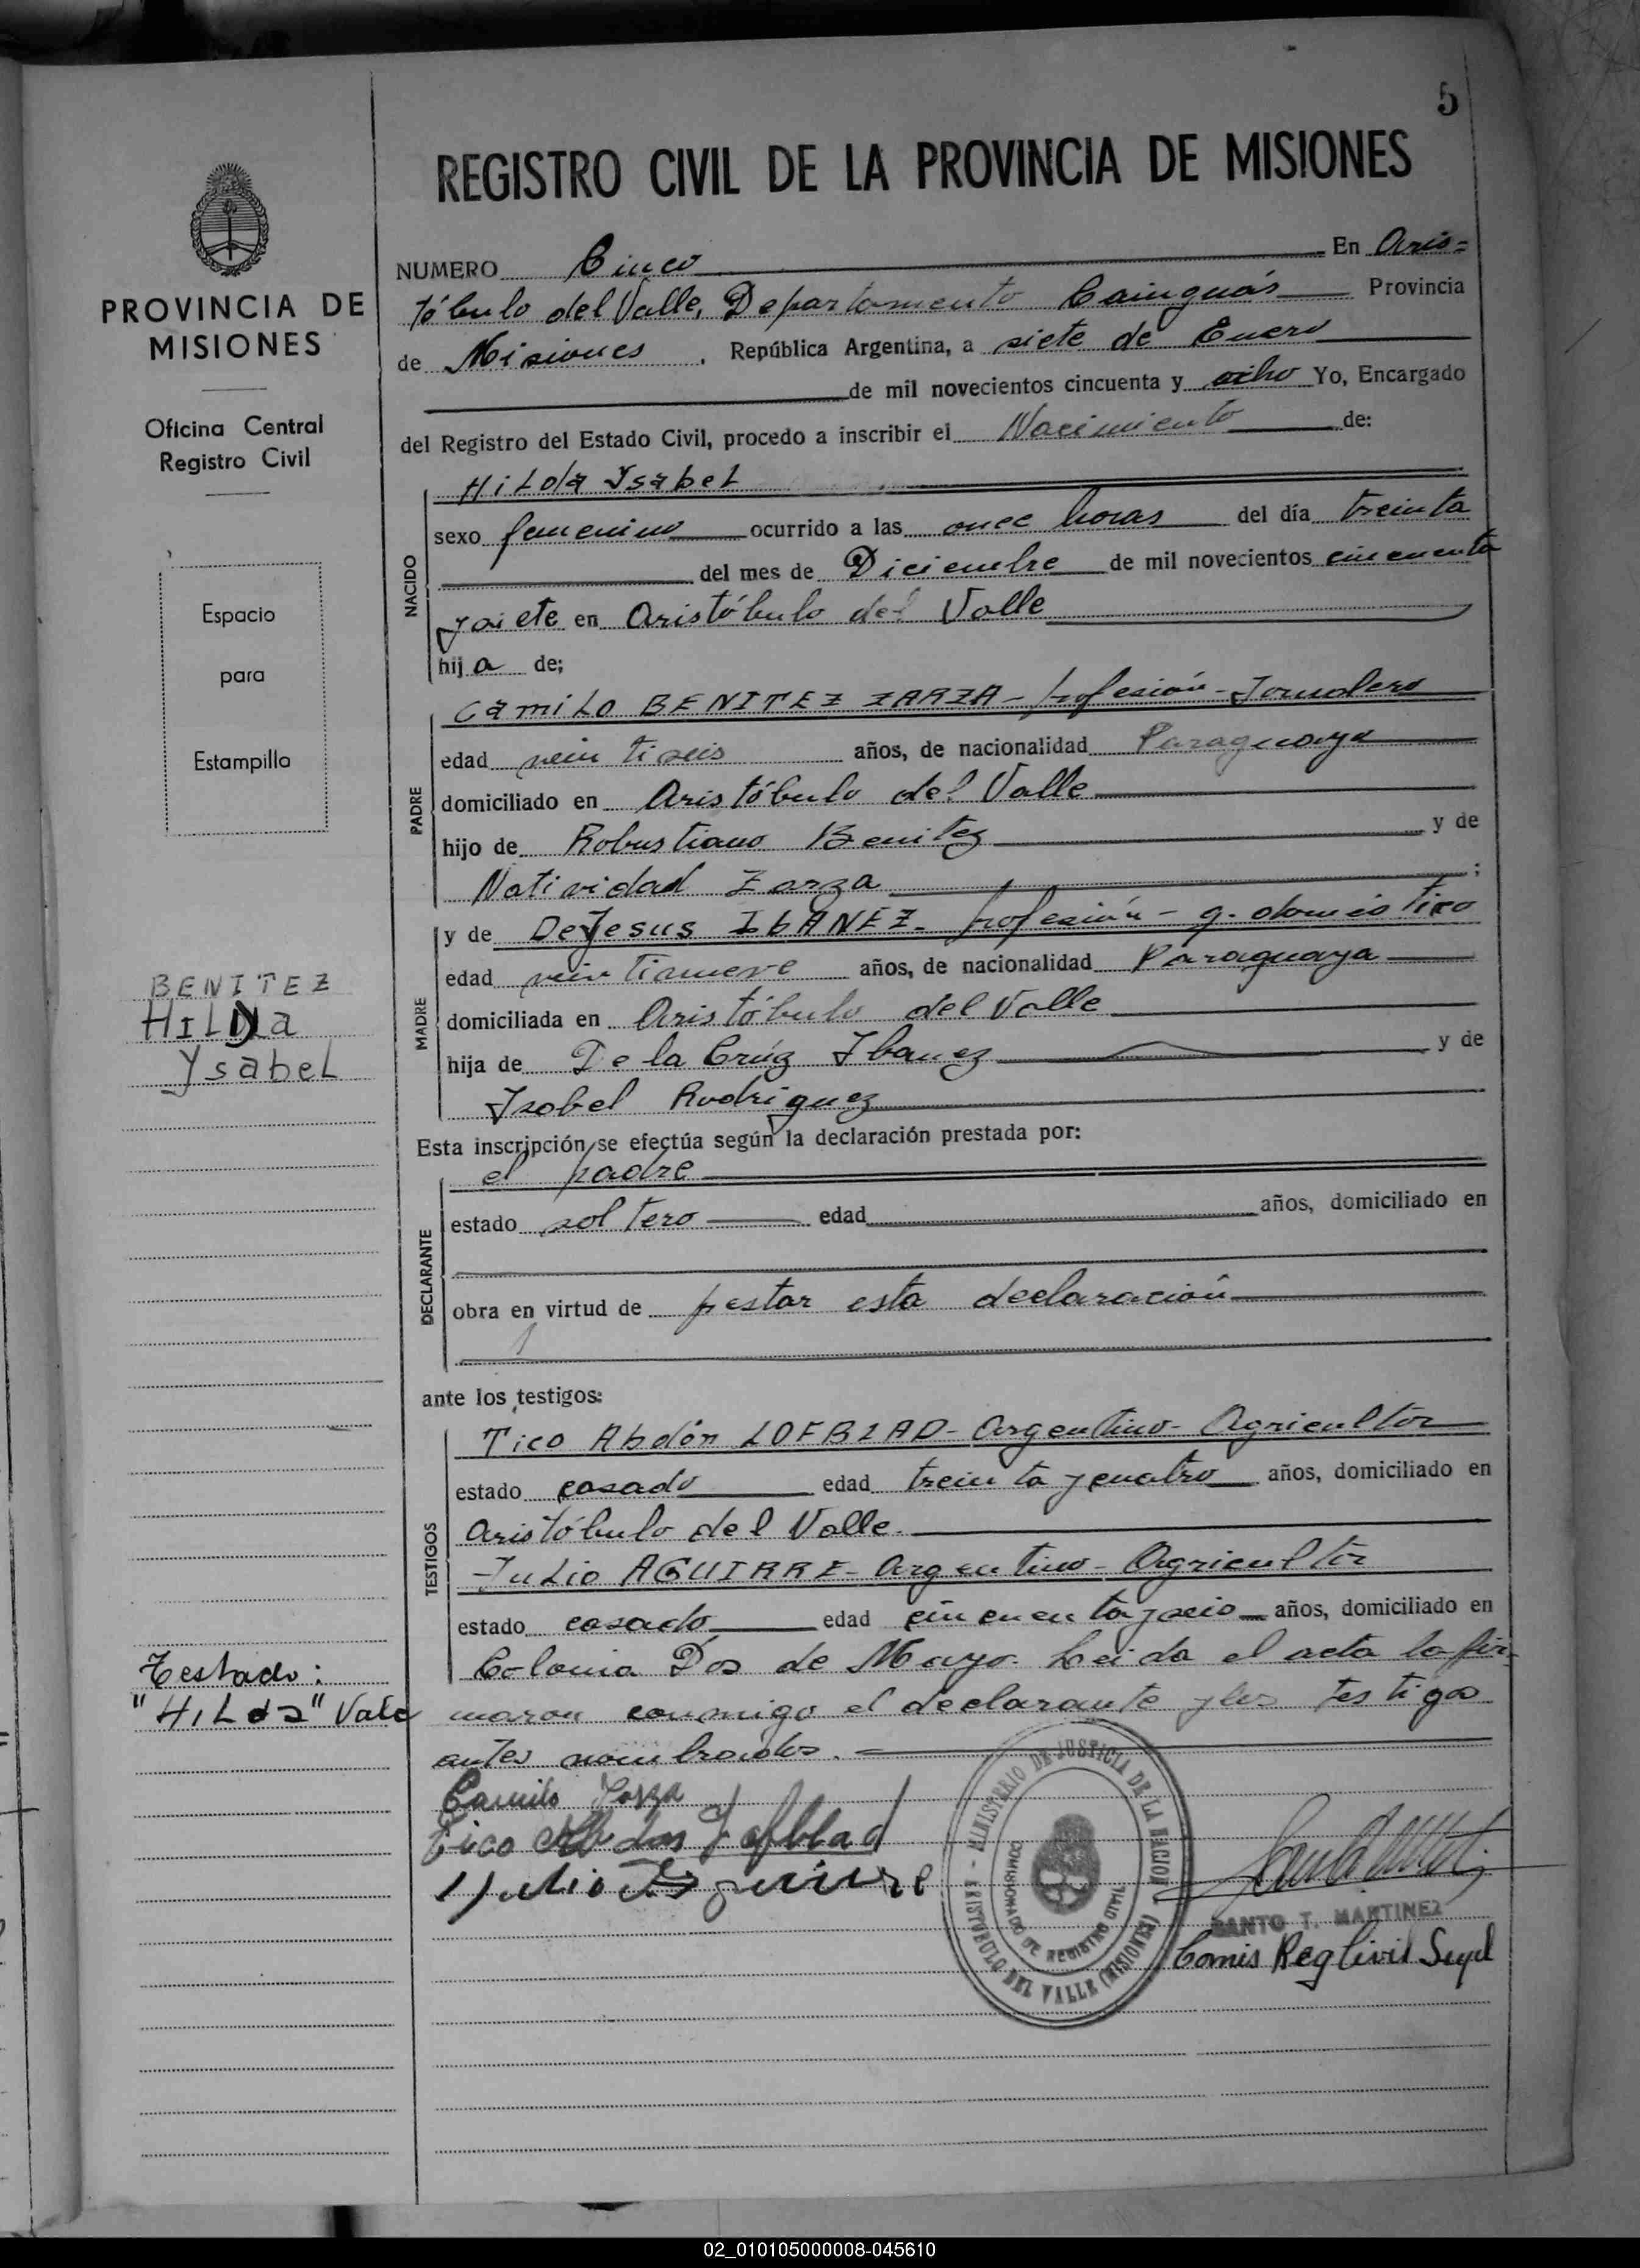 5
REGISTRO CIVIL DE LA PROVINCIA DE MISIONES
PROVINCIA DE
MISIONES
Oficina Central
Registro Civil
Espacio
para
Estampilla
BENITEZ
HILDa
YsabeL
Testado:
"HiLda" Vale
NUMERO Cinco En Aris=
tóbulo del Valle, Departamento Cainguás Provincia
de Misiones , República Argentina, a siete de Enero
de mil novecientos cincuenta y ocho Yo, Encargado
del Registro del Estado Civil, procedo a inscribir el Nacimiento de:
NACIDO
HiLda YsabeL
sexo femenino ocurrido a las once horas del día treinta
del mes de Diciembre de mil novecientos cincuenta
y siete en Aristóbulo del Valle
hij a de;
PADRE
CamiLo BENITEZ ZARZA - profesión - Jornalero
edad veintiseis años, de nacionalidad Paraguaya
domiciliado en Aristóbulo del Valle
hijo de Robustiano Benitez y de
Natividad Zarza ;
MADRE
y de DeJesus IbANEZ - profesión - q. domestico
edad veintinueve años, de nacionalidad Paraguaya
domiciliada en Aristóbulo del Valle
hija de De la Crúz Ibanez y de
Isabel Rodriguez
Esta inscripción se efectúa según la declaración prestada por:
DECLARANTE
el padre
estado soltero edad años, domiciliado en
obra en virtud de pestar esta declaración
ante los testigos:
TESTIGOS
Tico Abdón LOFBLAD - Argentino - Agricultor
estado casado edad treinta y cuatro años, domiciliado en
Aristóbulo del Valle.
JuLio AGUIRRE - Argentino - Agricultor
estado casado edad cincuenta y seis años, domiciliado en
Colonia Dos de Mayo. Leida el acta la fir-
maron conmigo el declarante y los testigos
antes nombrados. =
Camilo Zarza
Tico Abdon Lofblad
Julio Aguirre
MINISTERIO DE JUSTICIA DE LA NACION
ARISTOBULO DEL VALLE (MISIONES)
DE REGISTRO CIVIL
SANTO T. MARTINEZ
Comis Reg Civil Supl
02_010105000008-045610